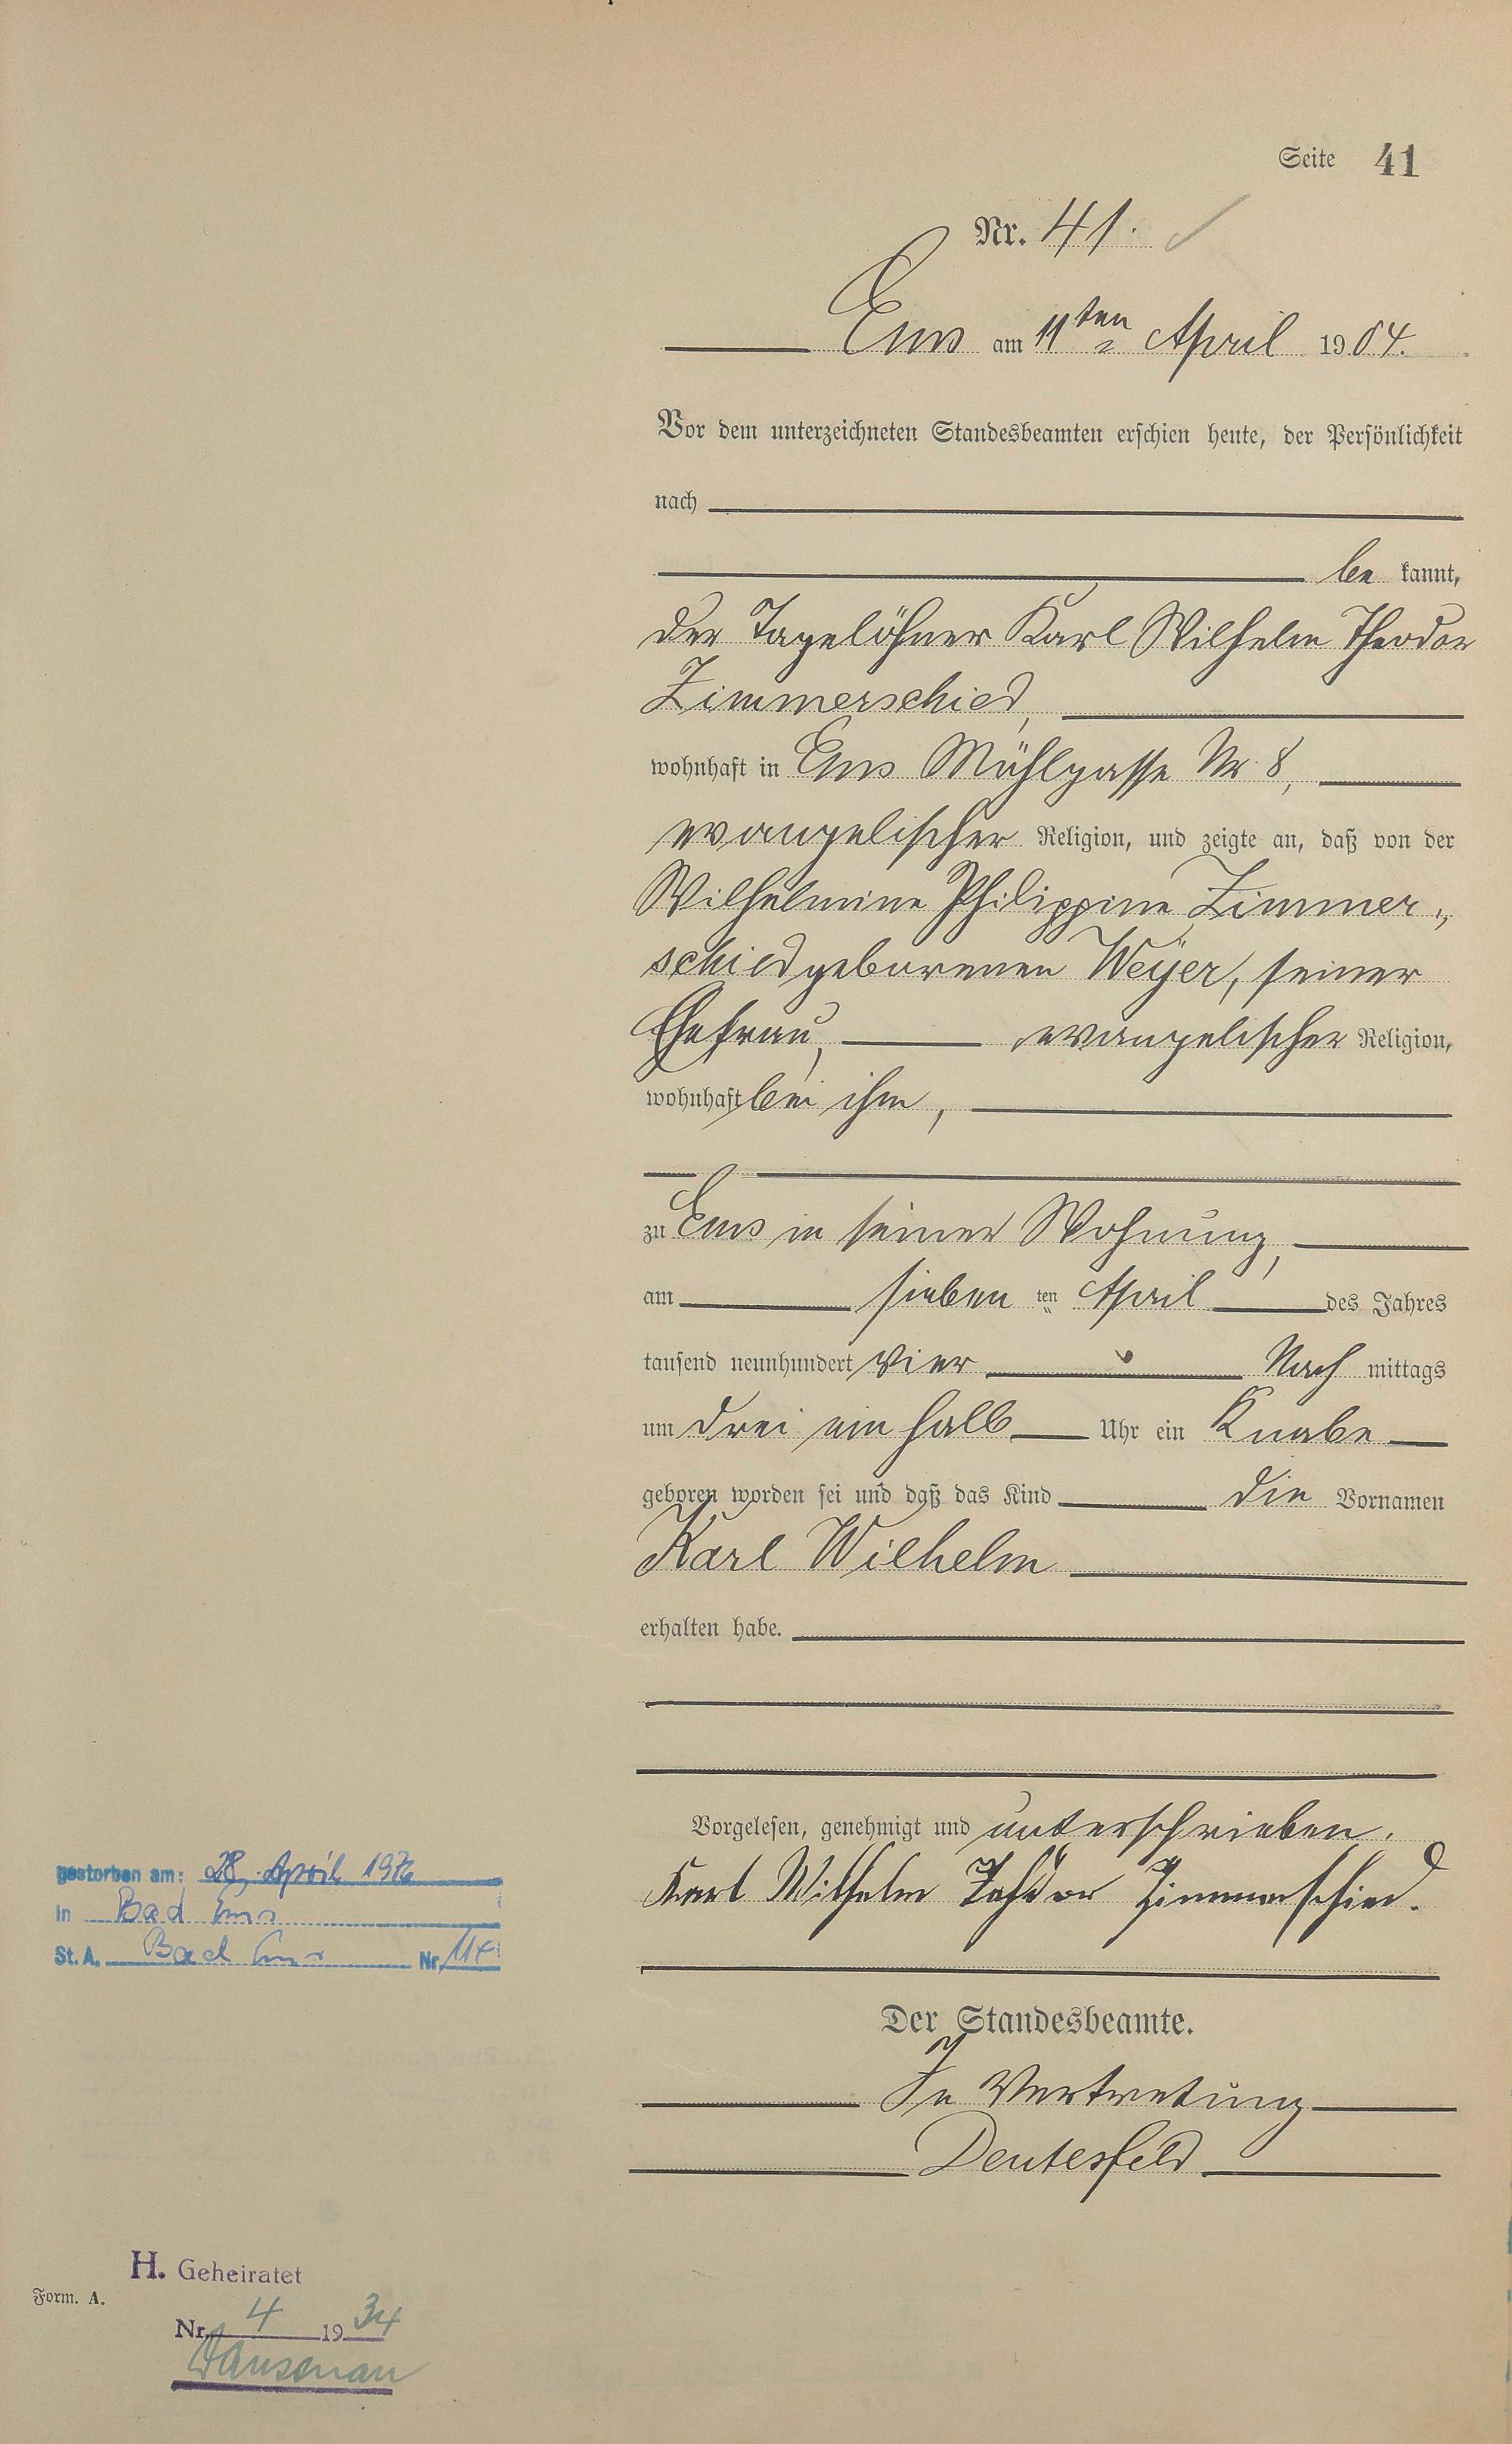 Seite 41
Nr. 41.
Ems am 11ten April 1904.
Vor dem unterzeichneten Standesbeamten erschien heute, der Persönlichkeit
nach
be kannt,
der Tagelöhner Karl Wilhelm Theodor
Zimmerschied,
wohnhaft in Ems Mühlgasse Nr. 8,
evangelischer Religion, und zeigte an, daß von der
Wilhelmine Philippine Zimmer„
schied geborenen Weÿer, seiner
Ehefrau, evangelischer Religion,
wohnhaft bei ihm,
zu Ems in seiner Wohnung,
am sieben ten April des Jahres
tausend neunhundert vier Nach mittags
um drei ein halb Uhr ein Knabe
geboren worden sei und daß das Kind die Vornamen
Karl Wilhelm
erhalten habe.
Vorgelesen, genehmigt und unterschrieben.
Karl Wilhelm Zimmerschied.
Der Standesbeamte.
In Vertretung
Deutesfeld
gestorben am: 28. April 1976
in Bad Ems
St. A. Bad Ems Nr.
H. Geheiratet
Form. A.
Nr. 4 1934
Dausenau